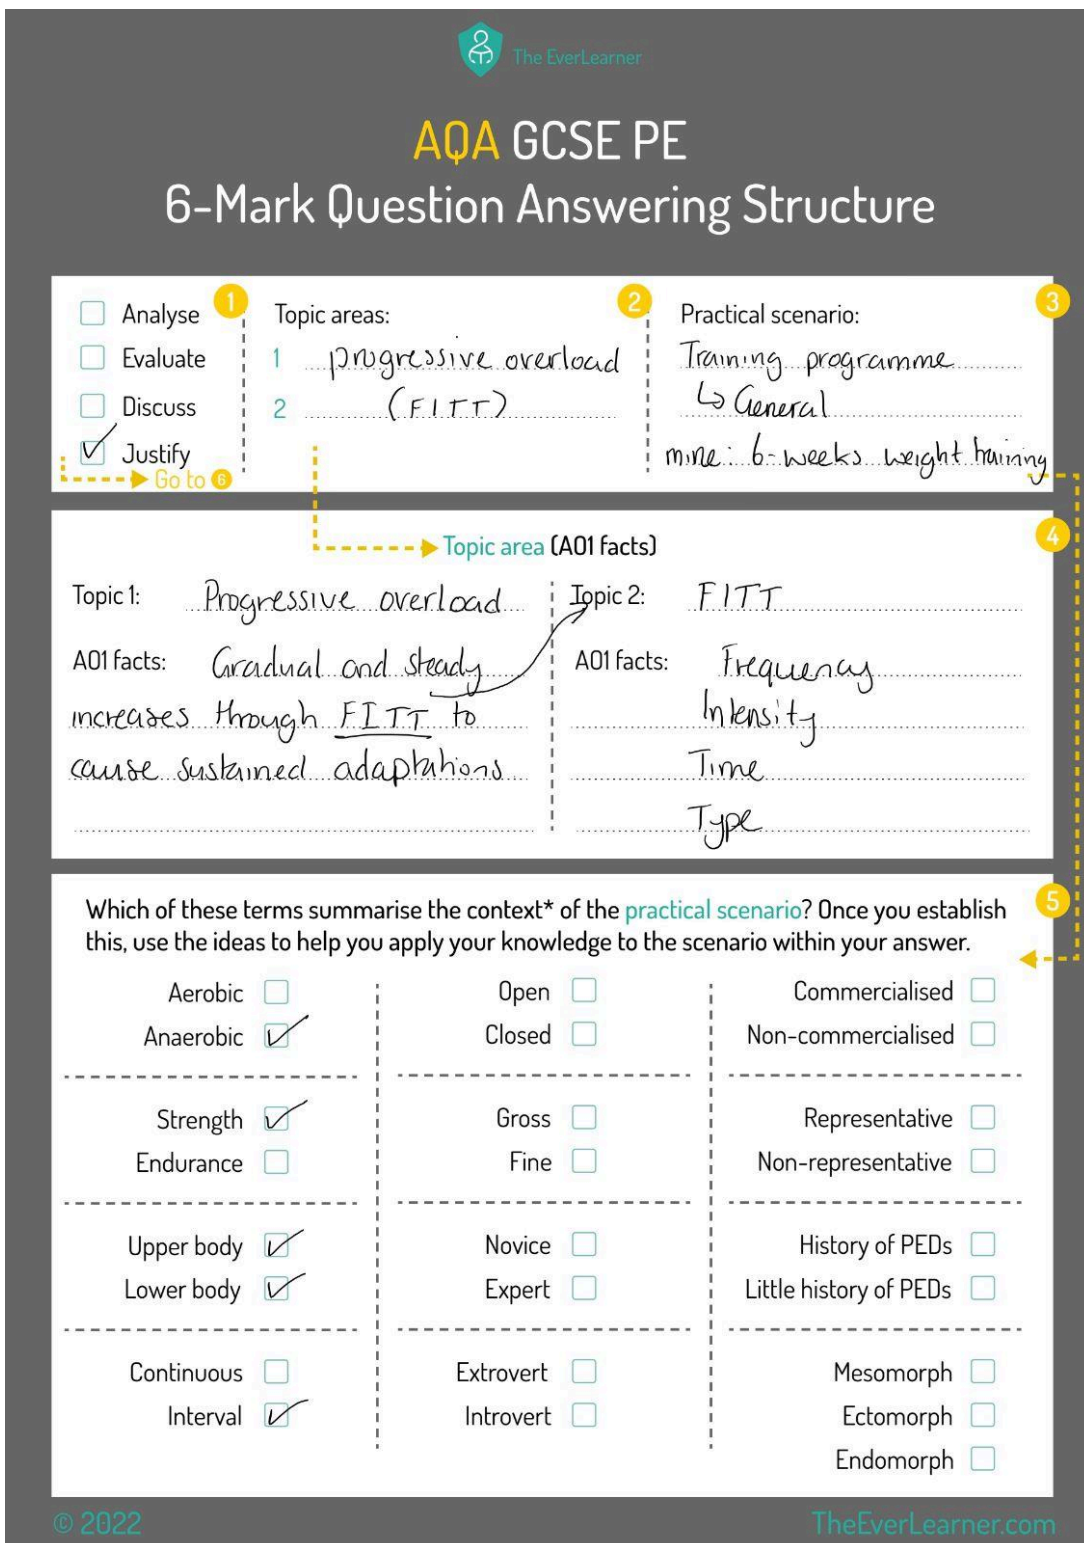 The EverLearner
AQA GCSE PE
6-Mark Question Answering Structure
1
Analyse
Evaluate
Discuss
Justify
Go to 6
2
Topic areas:
1 progressive overload
2 (FITT)
3
Practical scenario:
Training programme
↳ General
mine: 6-weeks weight training
4
Topic area (AO1 facts)
Topic 1: Progressive overload
AO1 facts: Gradual and steady
increases through FITT to
cause sustained adaptations
Topic 2: FITT
AO1 facts: Frequency
Intensity
Time
Type
5
Which of these terms summarise the context* of the practical scenario? Once you establish
this, use the ideas to help you apply your knowledge to the scenario within your answer.
Aerobic
Anaerobic
Strength
Endurance
Upper body
Lower body
Continuous
Interval
Open
Closed
Gross
Fine
Novice
Expert
Extrovert
Introvert
Commercialised
Non-commercialised
Representative
Non-representative
History of PEDs
Little history of PEDs
Mesomorph
Ectomorph
Endomorph
© 2022
TheEverLearner.com